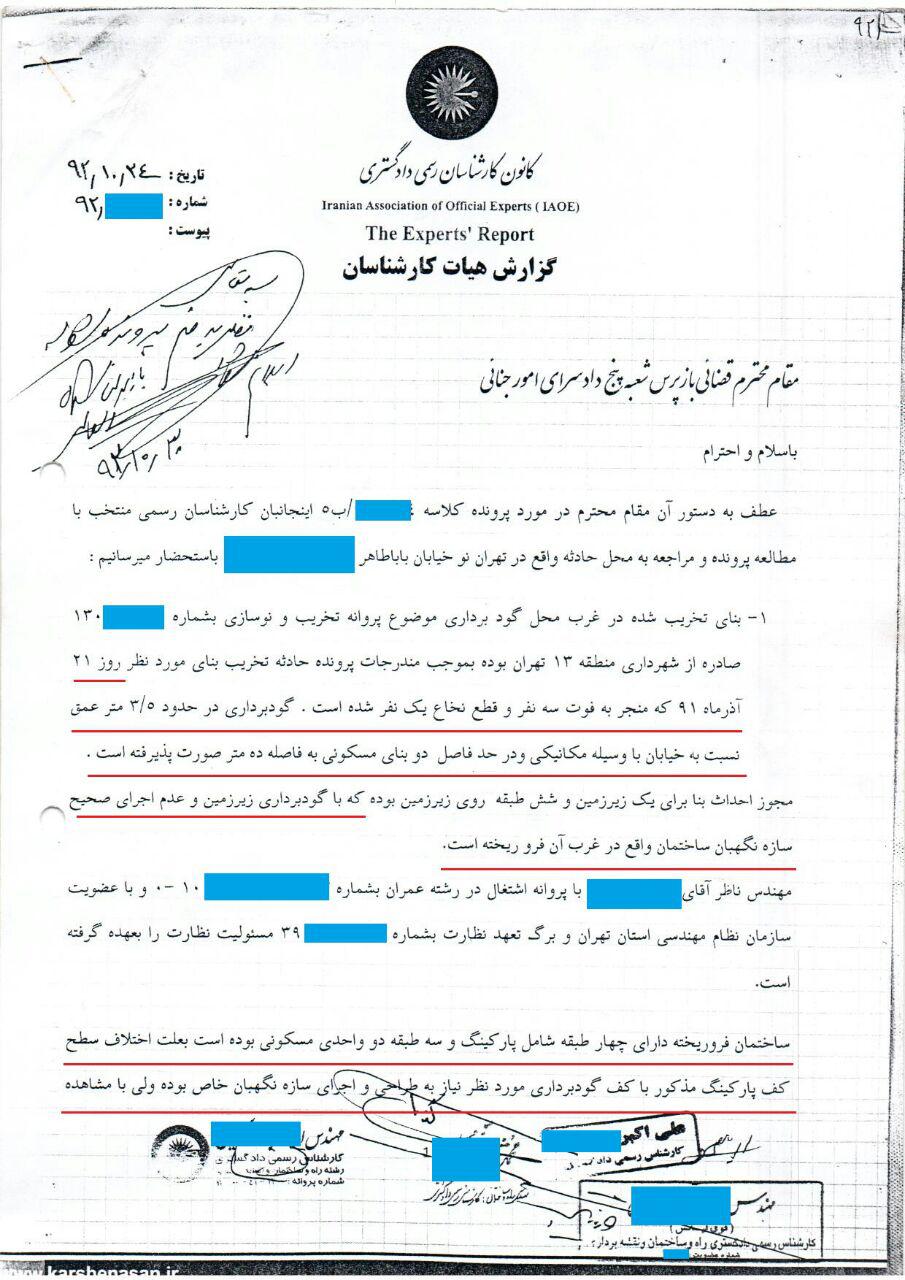 ۹۲
کانون کارشناسان رسمی دادگستری
Iranian Association of Official Experts ( IAOE)
The Experts' Report
گزارش هیات کارشناسان
تاریخ : ۹۲,۱۰,۲۴
شماره : ۹۲,
پیوست :
۹۲/۱۰/۳۰
مقام محترم قضائی بازپرس شعبه پنج دادسرای امور جنائی
باسلام و احترام
عطف به دستور آن مقام محترم در مورد پرونده کلاسه /ب۵ اینجانبان کارشناسان رسمی منتخب با
مطالعه پرونده و مراجعه به محل حادثه واقع در تهران نو خیابان باباطاهر باستحضار میرسانیم :
۱- بنای تخریب شده در غرب محل گود برداری موضوع پروانه تخریب و نوسازی بشماره ۱۳۰
صادره از شهرداری منطقه ۱۳ تهران بوده بموجب مندرجات پرونده حادثه تخریب بنای مورد نظر روز ۲۱
آذرماه ۹۱ که منجر به فوت سه نفر و قطع نخاع یک نفر شده است . گودبرداری در حدود ۳/۵ متر عمق
نسبت به خیابان با وسیله مکانیکی ودر حد فاصل دو بنای مسکونی به فاصله ده متر صورت پذیرفته است .
مجوز احداث بنا برای یک زیرزمین و شش طبقه روی زیرزمین بوده که با گودبرداری زیرزمین و عدم اجرای صحیح
سازه نگهبان ساختمان واقع در غرب آن فرو ریخته است.
مهندس ناظر آقای با پروانه اشتغال در رشته عمران بشماره ۱۰ -۰ و با عضویت
سازمان نظام مهندسی استان تهران و برگ تعهد نظارت بشماره ۳۹ مسئولیت نظارت را بعهده گرفته
است.
ساختمان فروریخته دارای چهار طبقه شامل پارکینگ و سه طبقه دو واحدی مسکونی بوده است بعلت اختلاف سطح
کف پارکینگ مذکور با کف گودبرداری مورد نظر نیاز به طراحی و اجرای سازه نگهبان خاص بوده ولی با مشاهده
مهندس
کارشناس رسمی دادگستری
رشته راه و ساختمان و
شماره پروانه :
علی اکبر
کارشناس رسمی دادگستری
مهندس
کارشناس رسمی دادگستری راه وساختمان ونقشه برداری
شماره عضویت
www.karshenasan.ir